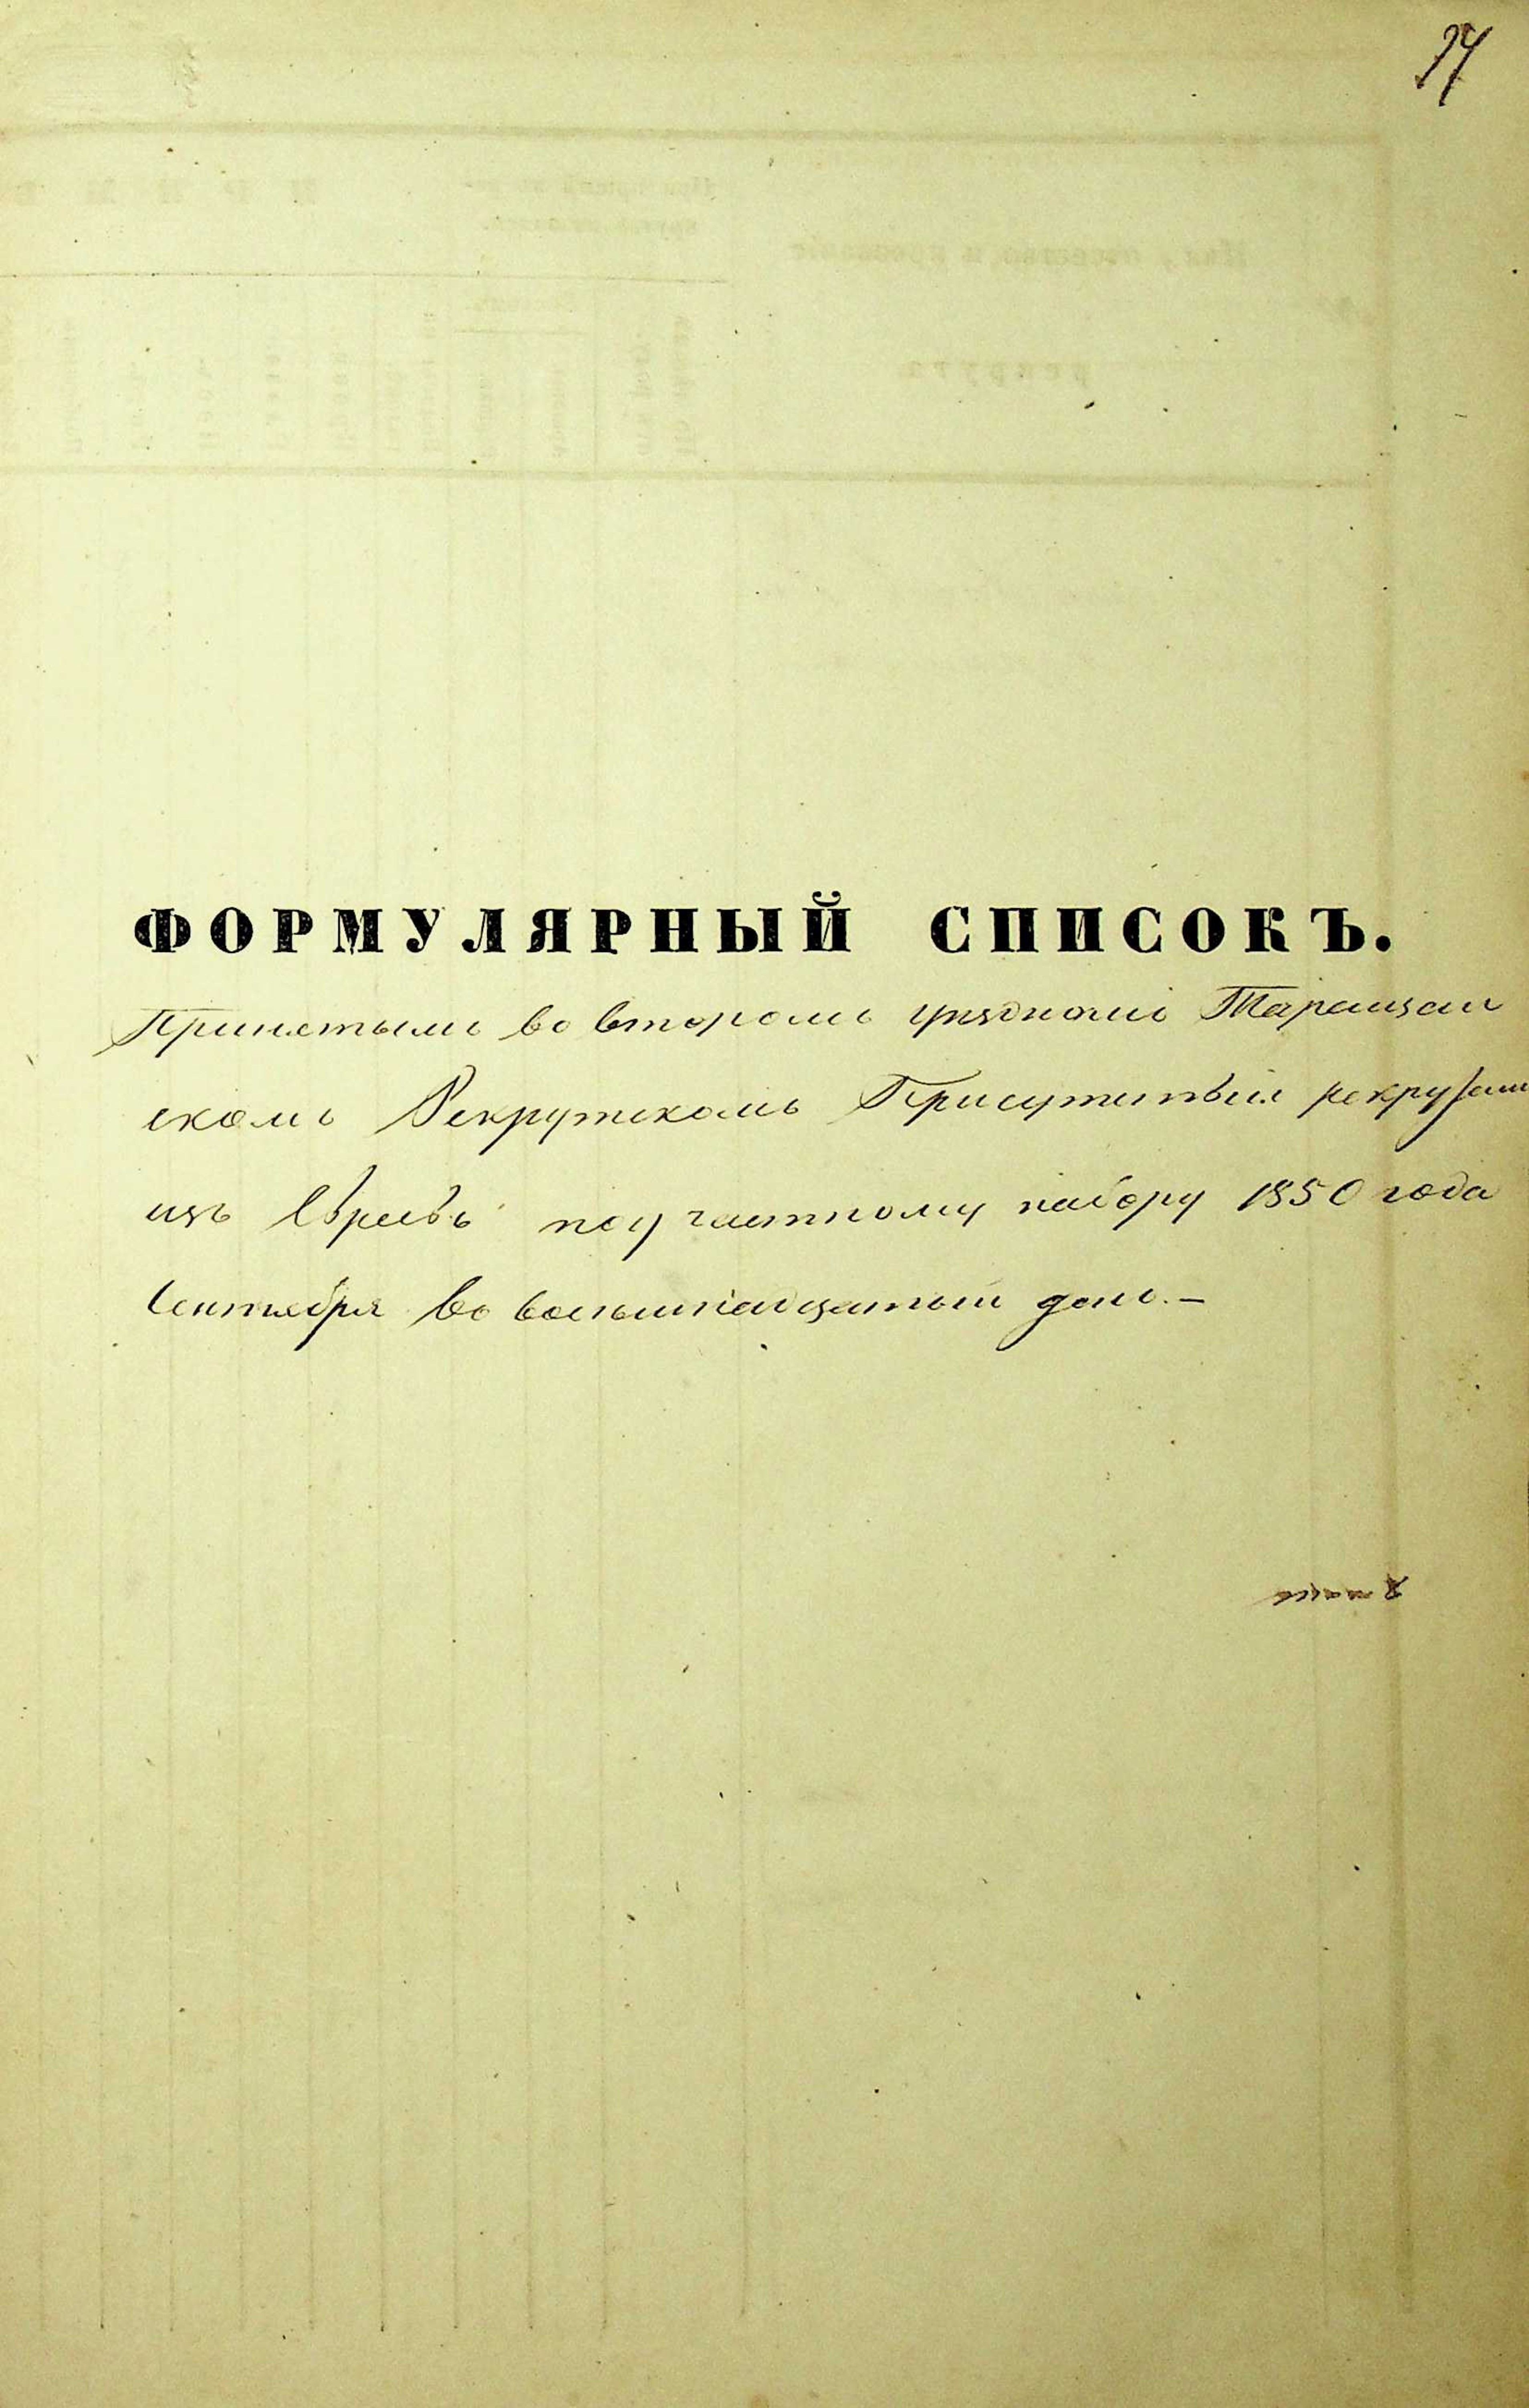 ФОРМУЛЯРНЫЙ СПИСОКЪ.
Принятымъ во второмъ уѣздномъ Таращан
скомъ Рекрутскомъ Присутствіи рекрутамъ
изъ Евреевъ по частному набору 1850 года
Сентября во восьмнадцатый день.—